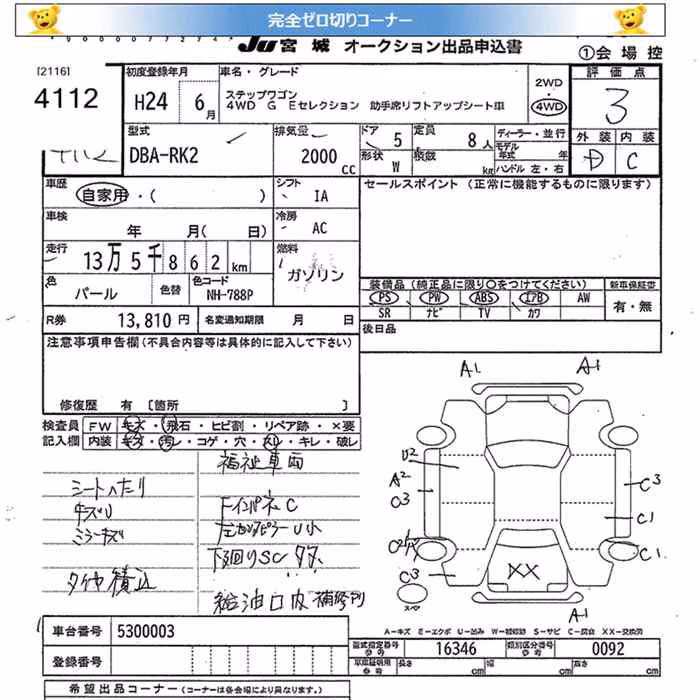 完全ゼロ切りコーナー
JU 宮城 オークション出品申込書
①会場控
[2116]
4112
初度登録年月
H24 6月
車名・グレード
ステップワゴン
4WD G Eセレクション 助手席リフトアップシート車
2WD
・
4WD
評価点
3
外装 内装
D C
型式
DBA-RK2
排気量
2000 CC
ドア 5
形状 W
定員 8人
積数 kg
ディーラー・並行
モデル年式 年
ハンドル 左・右
車歴
自家用・( )
シフト
IA
セールスポイント (正常に機能するものに限ります)
車検
年 月( 日)
冷房
AC
走行
13万5千862km
燃料
ガソリン
色
パール
色替
色コード
NH-788P
装備品(純正品に限り○をつけてください)
新車保証書
PS PW ABS エアB AW
SR ナビ TV カワ
有・無
R券 13,810円 名変通知期限 月 日
後日品
注意事項申告欄(不具合内容等は具体的に記入して下さい)
修復歴 有 [箇所 ]
検査員 記入欄
FW キズ・飛石・ヒビ割・リペア跡・×要
内装 キズ・汚レ・コゲ・穴・スレ・キレ・破レ
福祉車両
シートへたり
キズU
ミラーキズ
タイヤ積込
FインパネC
下回りSC
給油口
A1
A1
U2
A2
C3
C3
C1
C1
C3
XX
スペア
A1
A-キズ E-エクボ U-凹み W-補修跡 S-サビ C-腐食 XX-交換済
車台番号 5300003
型式指定番号 16346
類別区分番号 0092
登録番号
車庫証明用参考 長さ cm 幅 cm 高さ cm
希望出品コーナー (コーナーは各会場により異なります。)